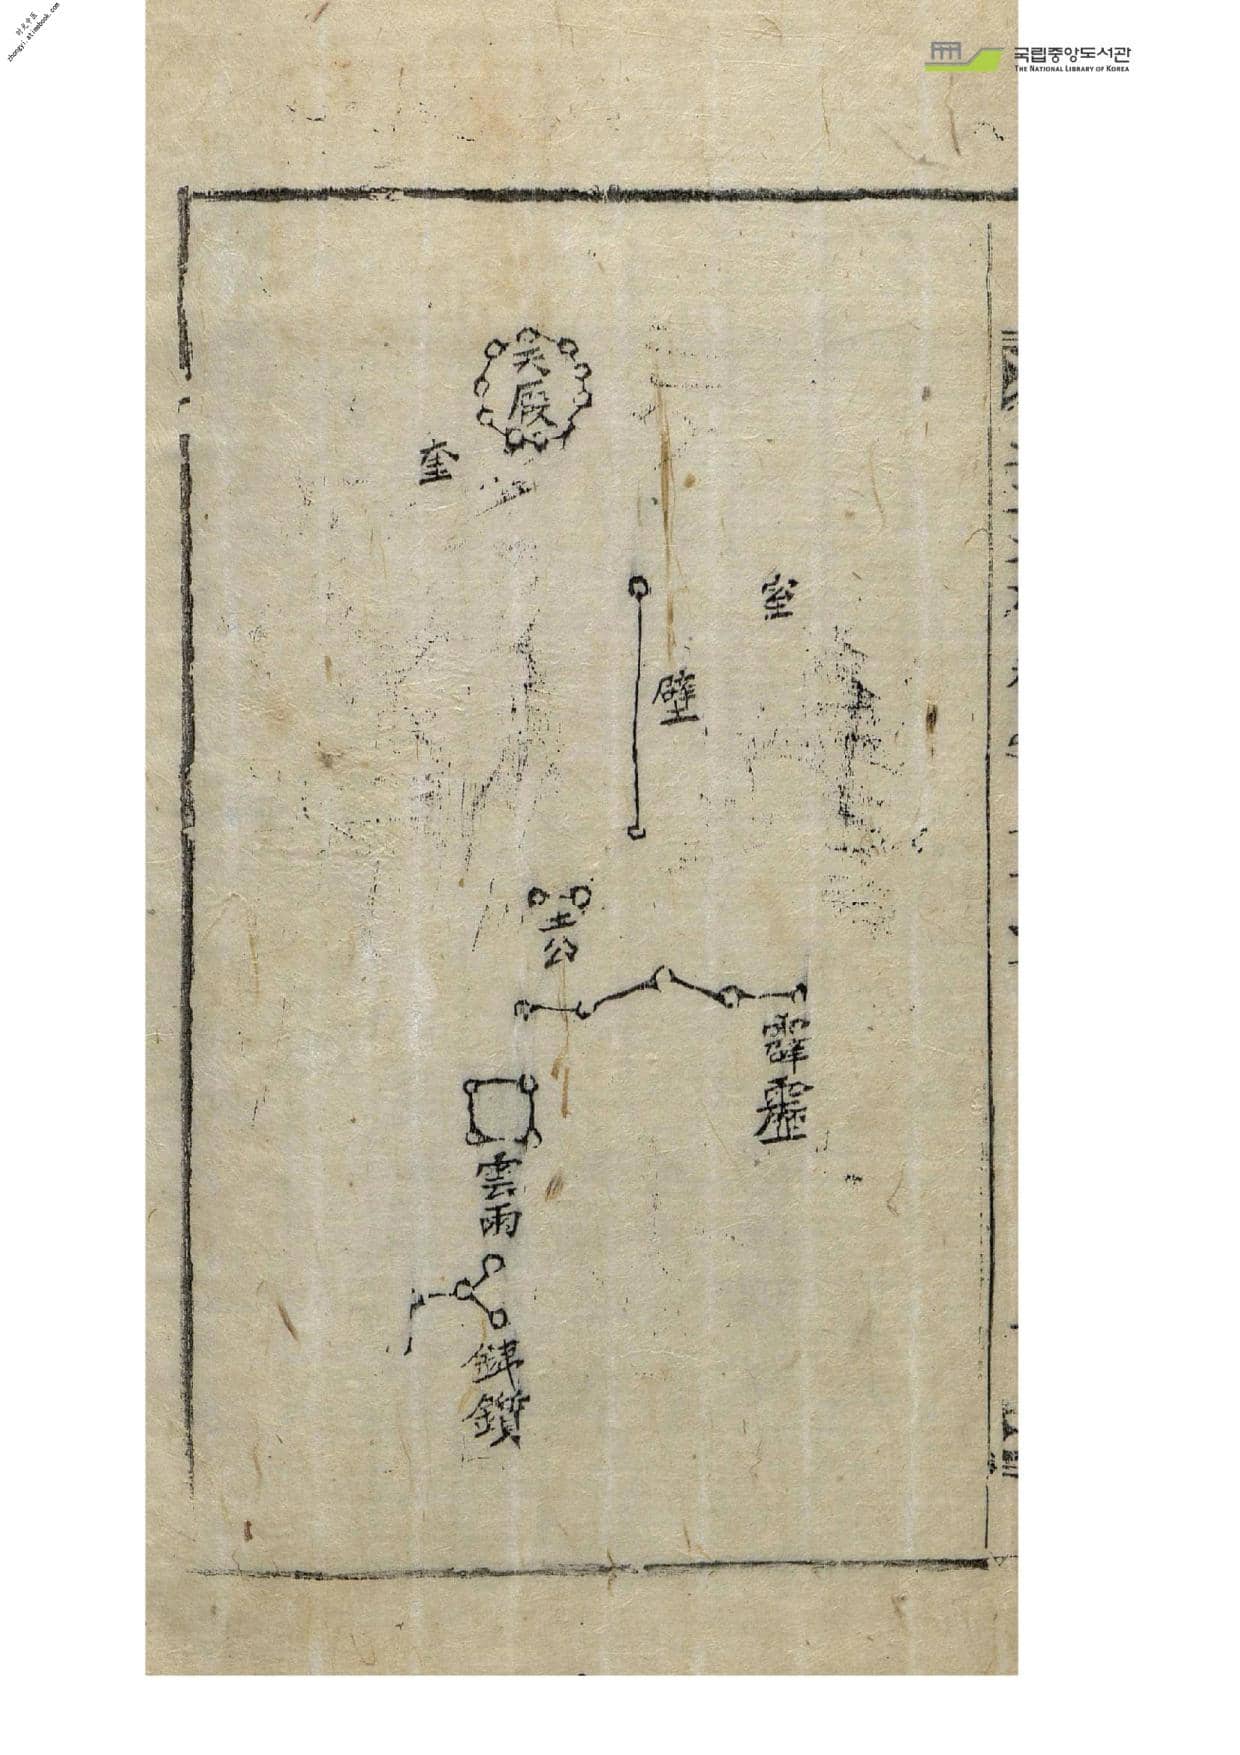 时光中医
zhongyi.atimebook.com
국립중앙도서관
THE NATIONAL LIBRARY OF KOREA
天廐
奎
室
壁
土公
霹靂
雲雨
鈇鑕